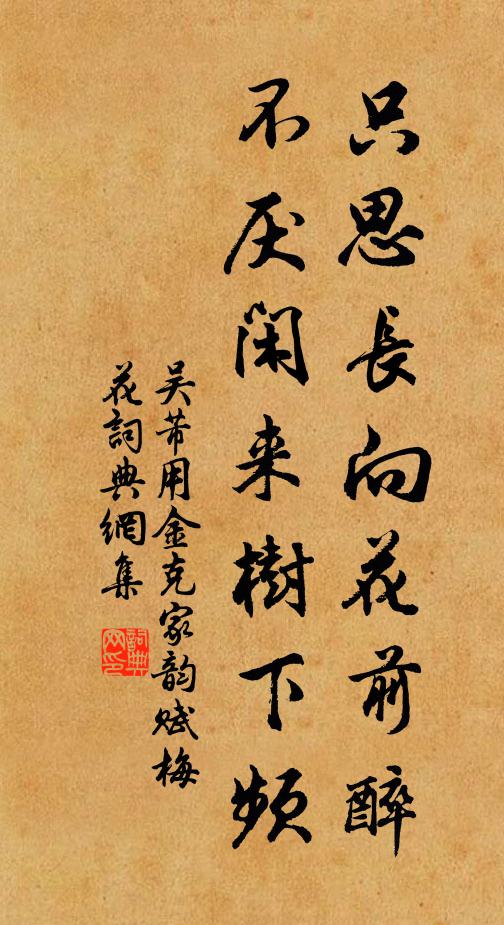 只思長向花前醉
不厌闲来樹下频
吴芾用金克家韵赋梅
花詞典網集
詞典网印